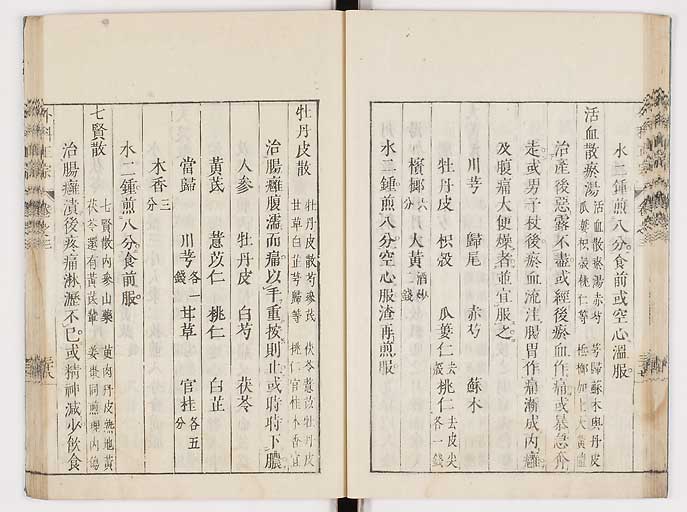 水二鍾煎八分食前或空心溫服
活血散瘀湯 活血散瘀湯赤芍 芎歸蘇木與丹皮
瓜蔞枳殼桃仁等 檳榔加上大黃
治產後惡露不盡或經後瘀血作痛或暴急奔
走或男子杖後瘀血流注腸胃作痛漸成內癰
及腹痛大便燥者並宜服之
川芎 歸尾 赤芍 蘇木
牡丹皮 枳殼 瓜蔞仁去殼 桃仁去皮尖各一錢
檳榔六分 大黃酒炒二錢
水二鍾煎八分空心服渣再煎服
牡丹皮散 牡丹皮散芍參芪 茯苓薏苡牡丹皮
甘草白芷芎歸等 桃仁官桂木香宜
治腸癰腹濡而痛以手重按則止或時時下膿
人參 牡丹皮 白芍 茯苓
黃芪 薏苡仁 桃仁 白芷
當歸 川芎各一錢 甘草 官桂各五分
木香三分
水二鍾煎八分食前服
七賢散 七賢散內參山藥 萸肉丹皮熟地黃
茯苓還有黃芪輩 姜棗同煎理內傷
治腸癰潰後疼痛淋瀝不已或精神減少飲食
外科正宗
卷之三